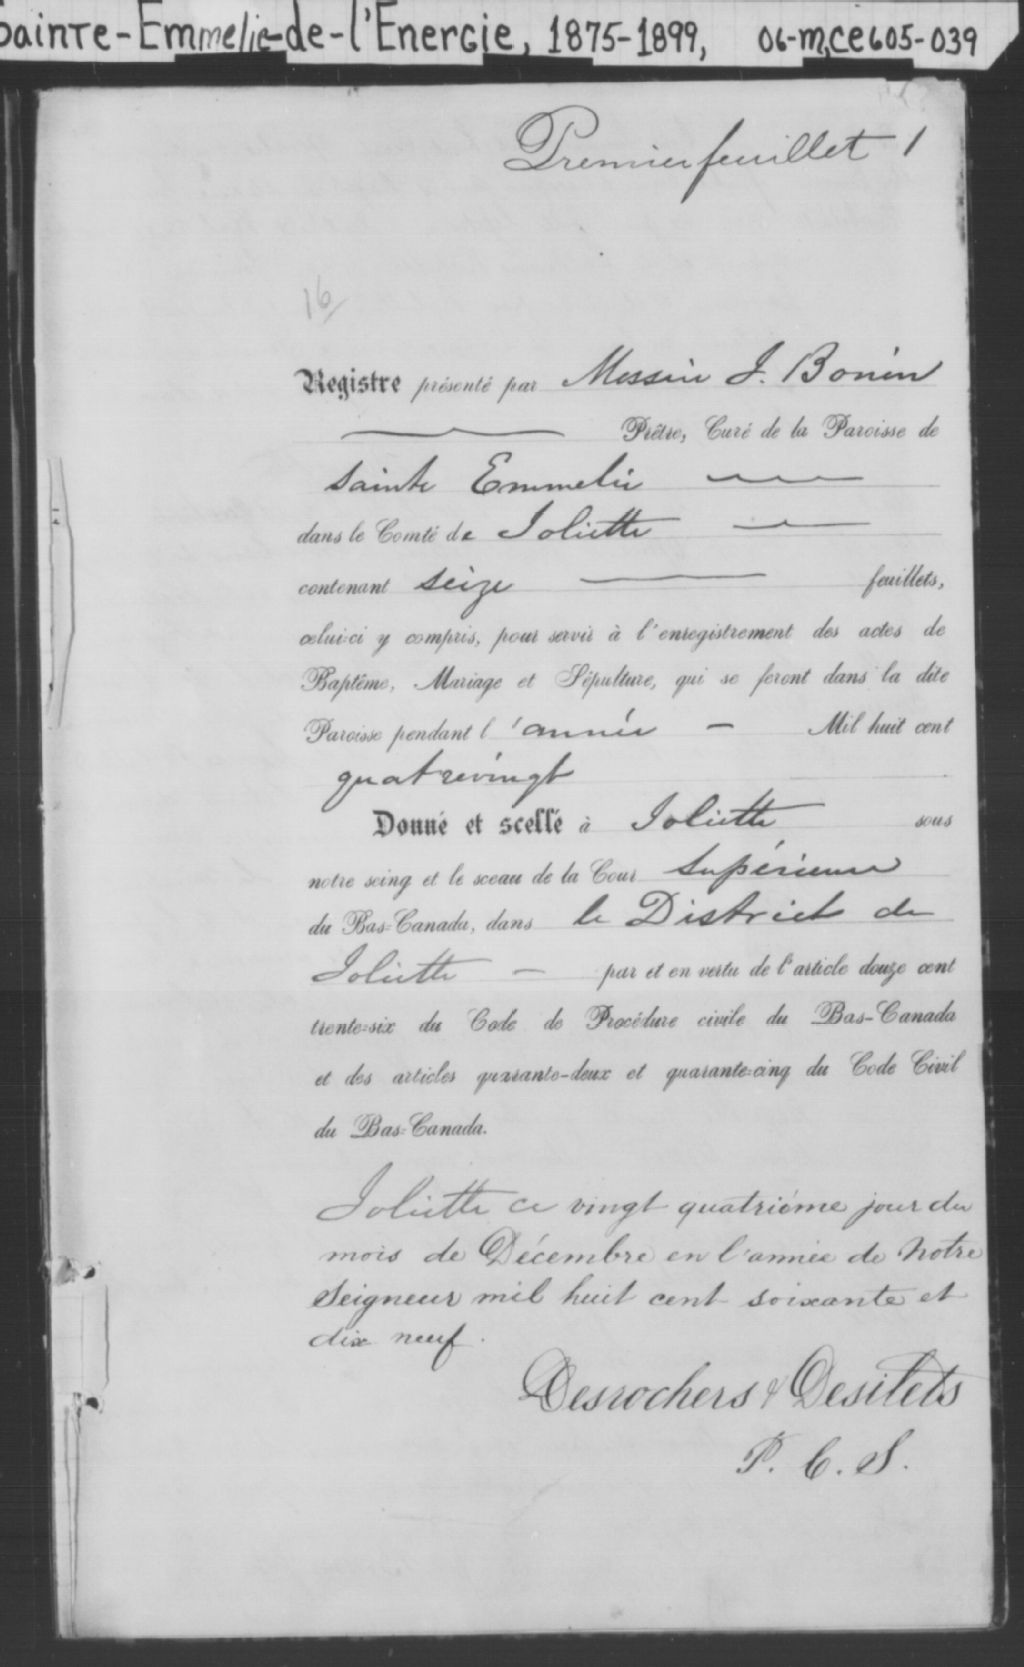 Sainte-Emmelie-de-l'Energie, 1875-1899, 06-M,CE605-039
Premier feuillet 1
16
Registre présenté par Messire J. Bonin
Prêtre, Curé de la Paroisse de
Sainte Emmelie
dans le Comté de Joliette
contenant seize feuillets,
celui-ci y compris, pour servir à l'enregistrement des actes de
Baptême, Mariage et Sépulture, qui se feront dans la dite
Paroisse pendant l'année - Mil huit cent
quatrevingt
Donné et scellé à Joliette sous
notre seing et le sceau de la Cour Supérieure
du Bas-Canada, dans le District de
Joliette - par et en vertu de l'article douze cent
trente-six du Code de Procédure civile du Bas-Canada
et des articles quarante-deux et quarante-cinq du Code Civil
du Bas-Canada.
Joliette ce vingt quatrième jour du
mois de Décembre en l'année de Notre
Seigneur mil huit cent soixante et
dix neuf.
Desrochers & Desilets
P. C. S.